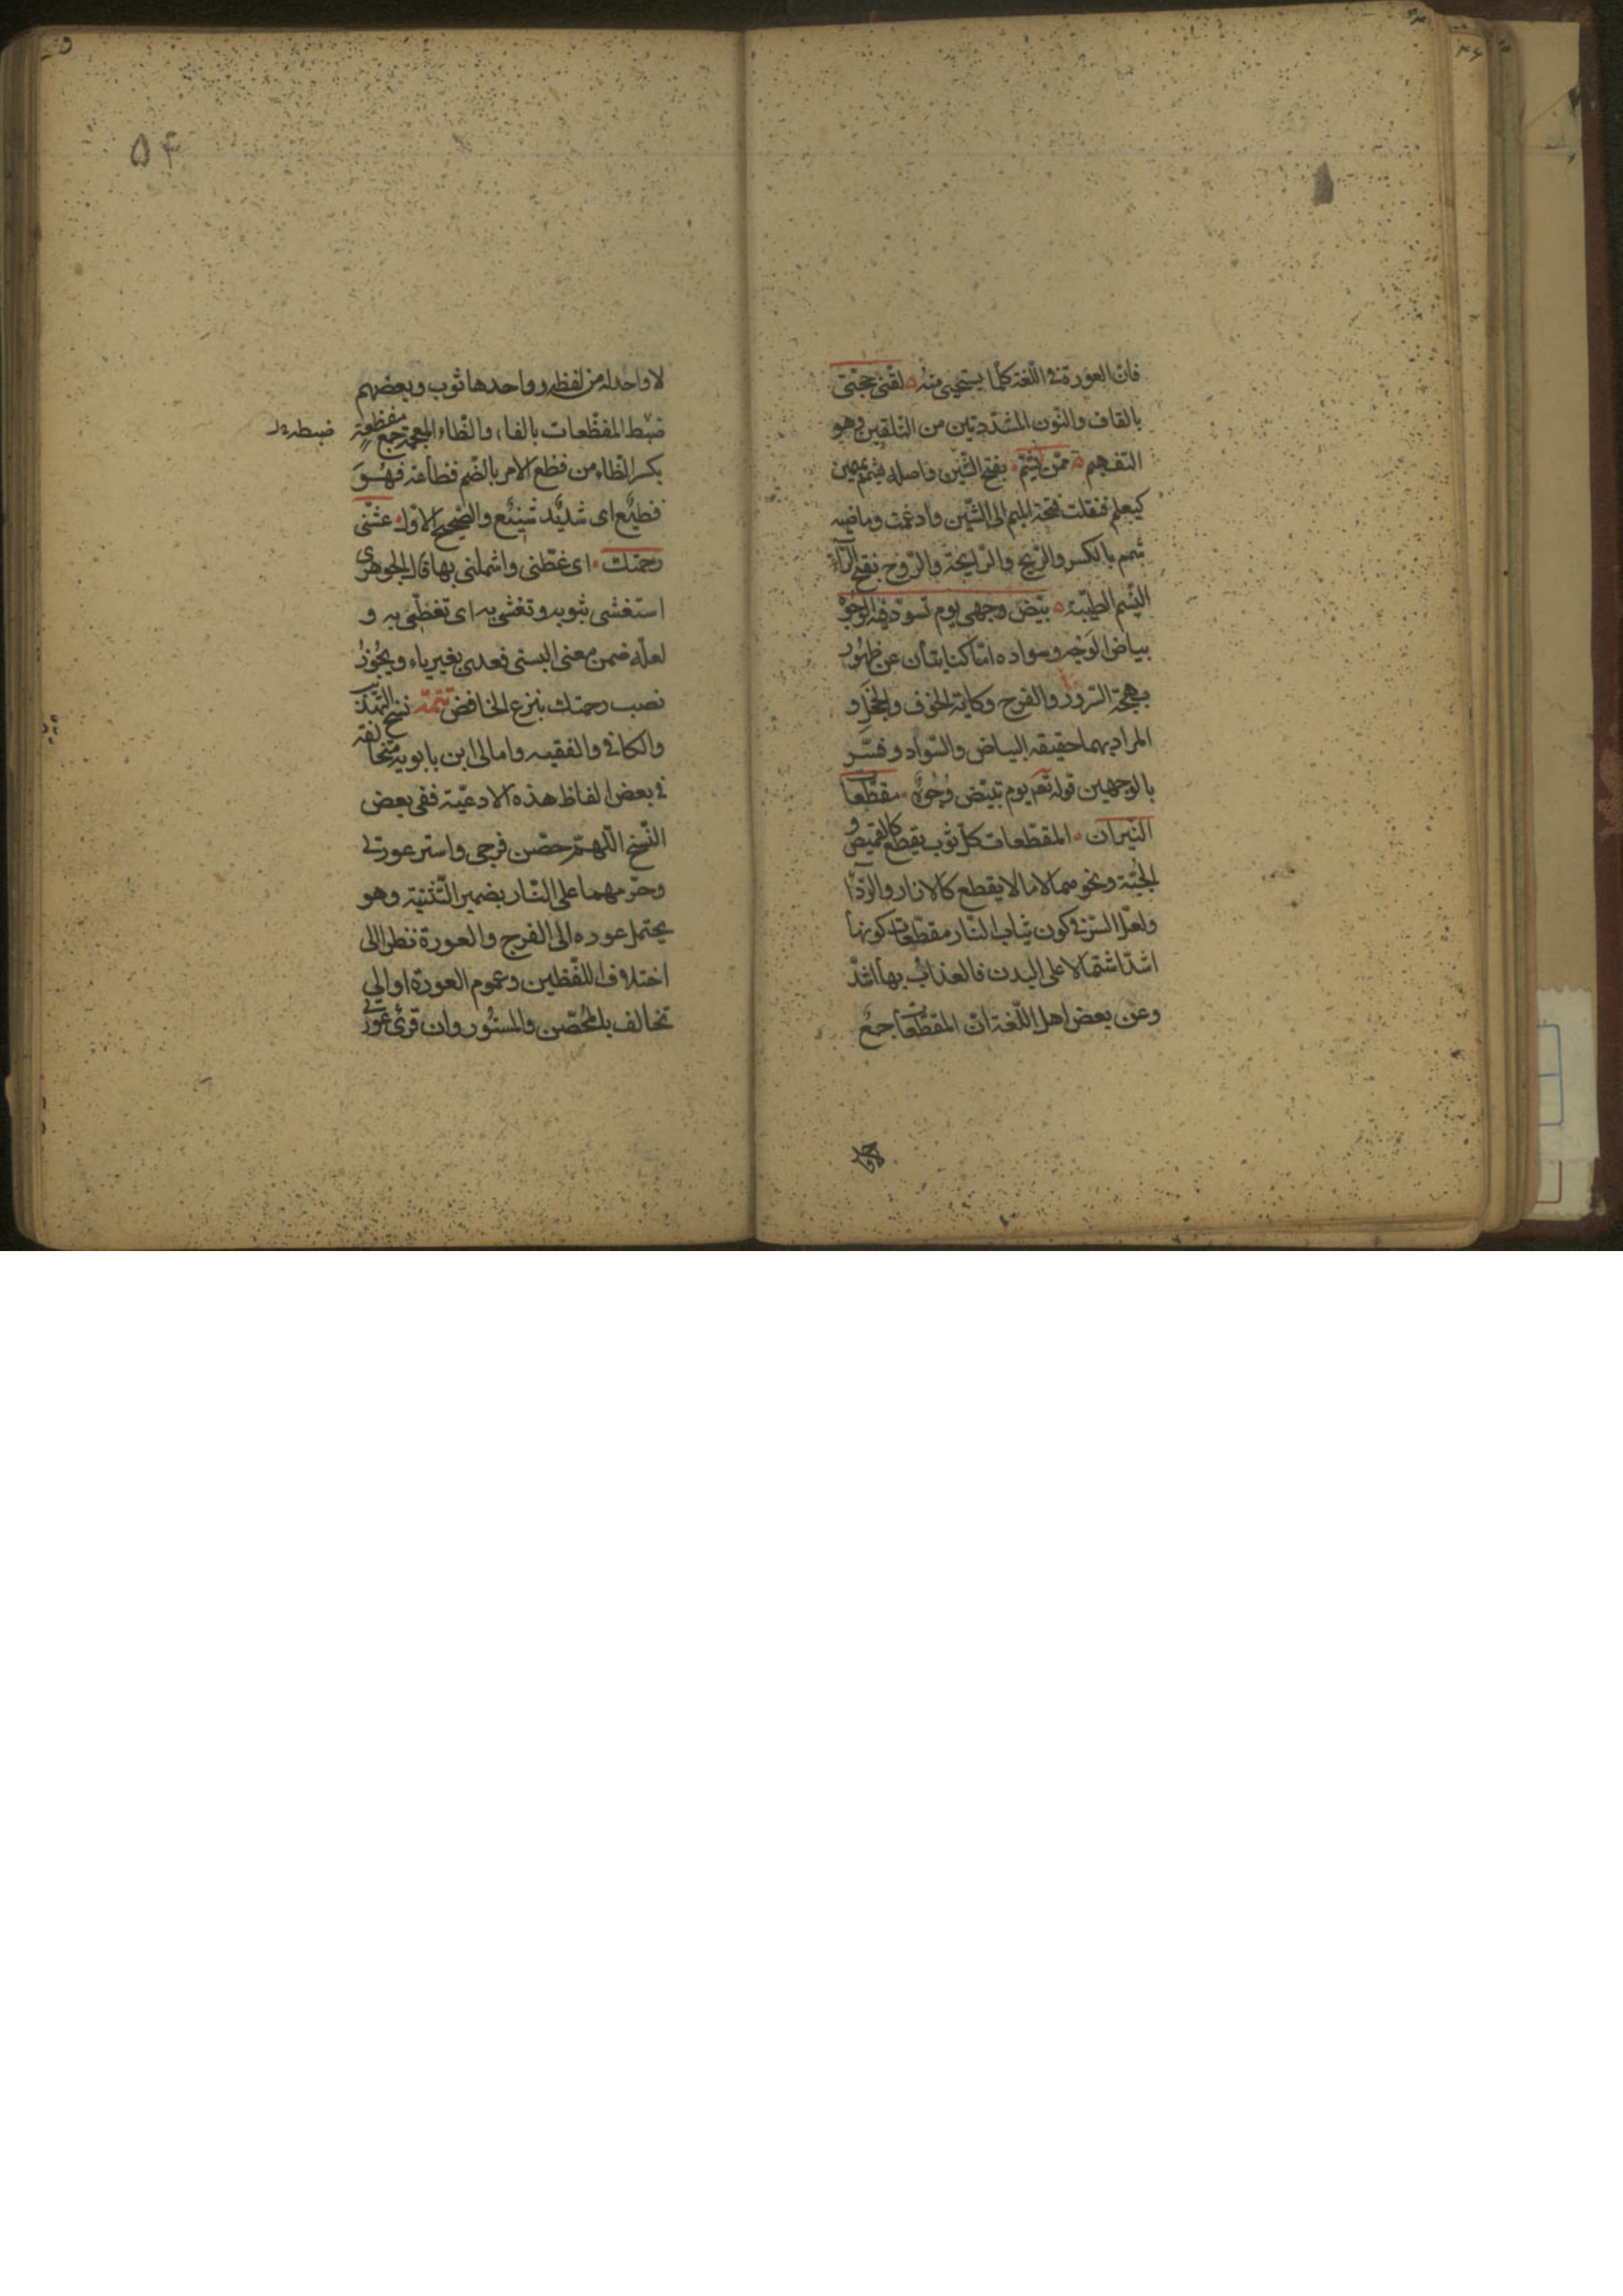 فان العورة فى اللغة كلما يستحيى منه لقنى حجتى
بالقاف والنون المشددتين من التلقين وهو
التفهيم ممن يشم بفتح الشين واصله يشمم بميمين
كيعلم فنقلت فتحة الميم الى الشين وادغمت وماضيه
شمم بالكسر والريح والرايحة والروح بفتح الراء
النسيم الطيبة بيض وجهى يوم تسود فيه الوجوه
بياض الوجه وسواده اما كنايتان عن ظهور
بهجة السرور والفرح وكابة الخوف والخجل و
المراد بهما حقيقة البياض والسواد وفسر
بالوجهين قوله تعم يوم تبيض وجوه مقطعات
النيران المقطعات كل ثوب يقطع كالقميص و
الجبة ونحوهما لا ما لا يقطع كالازار والردا
ولعل السر فى كون ثياب النار مقطعات كونها
اشد اشتمالا على البدن فالعذاب بها اشد
وعن بعض اهل اللغة ان المقطعات جمع
لا واحد
۵۴
لا واحد له من لفظه وواحدها ثوب وبعضهم
ضبط المفظعات بالفاء والظاء المعجمة جمع مفظعة
بكسر الظاء من فظع الامر بالضم فظاعة فهو
فظيع اى شديد شنيع والصحيح الاول غشنى
رحمتك اى غطنى واشملنى بها قال الجوهرى
استغشى بثوبه وتغشى به اى تغطى به و
لعله ضمن معنى البسنى فعدى بغير باء ويجوز
نصب رحمتك بنزع الخافض تتمة نسخ التهذيب
والكافى والفقيه وامالى ابن بابويه متخالفة
فى بعض الفاظ هذه الادعية ففى بعض
النسخ اللهم حصن فرجى واستر عورتى
وحرمهما على النار بضمير التثنية وهو
يحتمل عوده الى الفرج والعورة نظرا الى
اختلاف اللفظين وعموم العورة او الى
تخالف بالمحصن والمستور وان قرئ عورتى